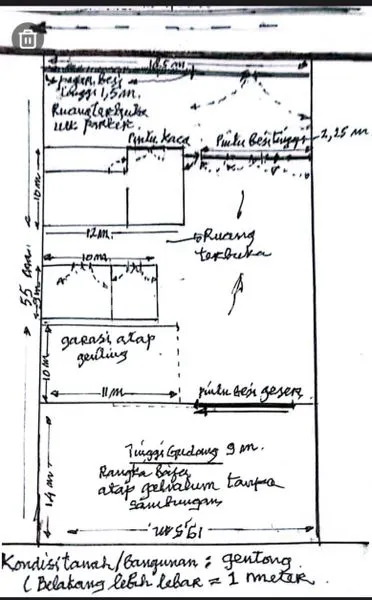 18.5 m
pagar besi
tinggi 1,5 m.
Ruang terbuka
utk parkir
Pintu kaca
Pintu Besi tinggi 2,25 m
10 m
12 m.
Ruang
terbuka
10 m
55
9 m
garasi atap
genting
10 m
11 m
Pintu Besi geser
Tinggi Gudang 9 m.
Rangka Baja
atap galvalum tanpa
sambungan
14 m
19,5 m.
Kondisi tanah/Bangunan : gentong
( Belakang lebih lebar = 1 meter